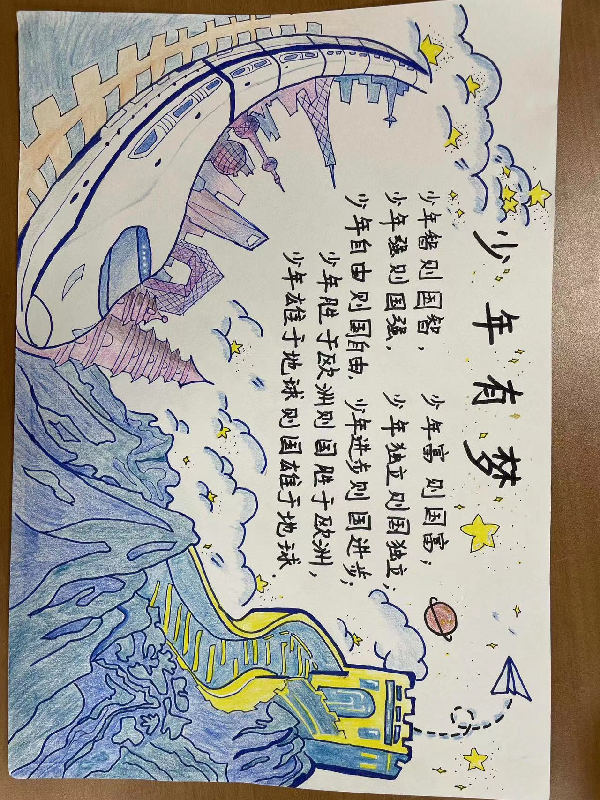 少年有梦
少年智则国智， 少年富则国富；
少年强则国强， 少年独立则国独立；
少年自由则国自由， 少年进步则国进步；
少年胜于欧洲则国胜于欧洲，
少年雄于地球则国雄于地球．